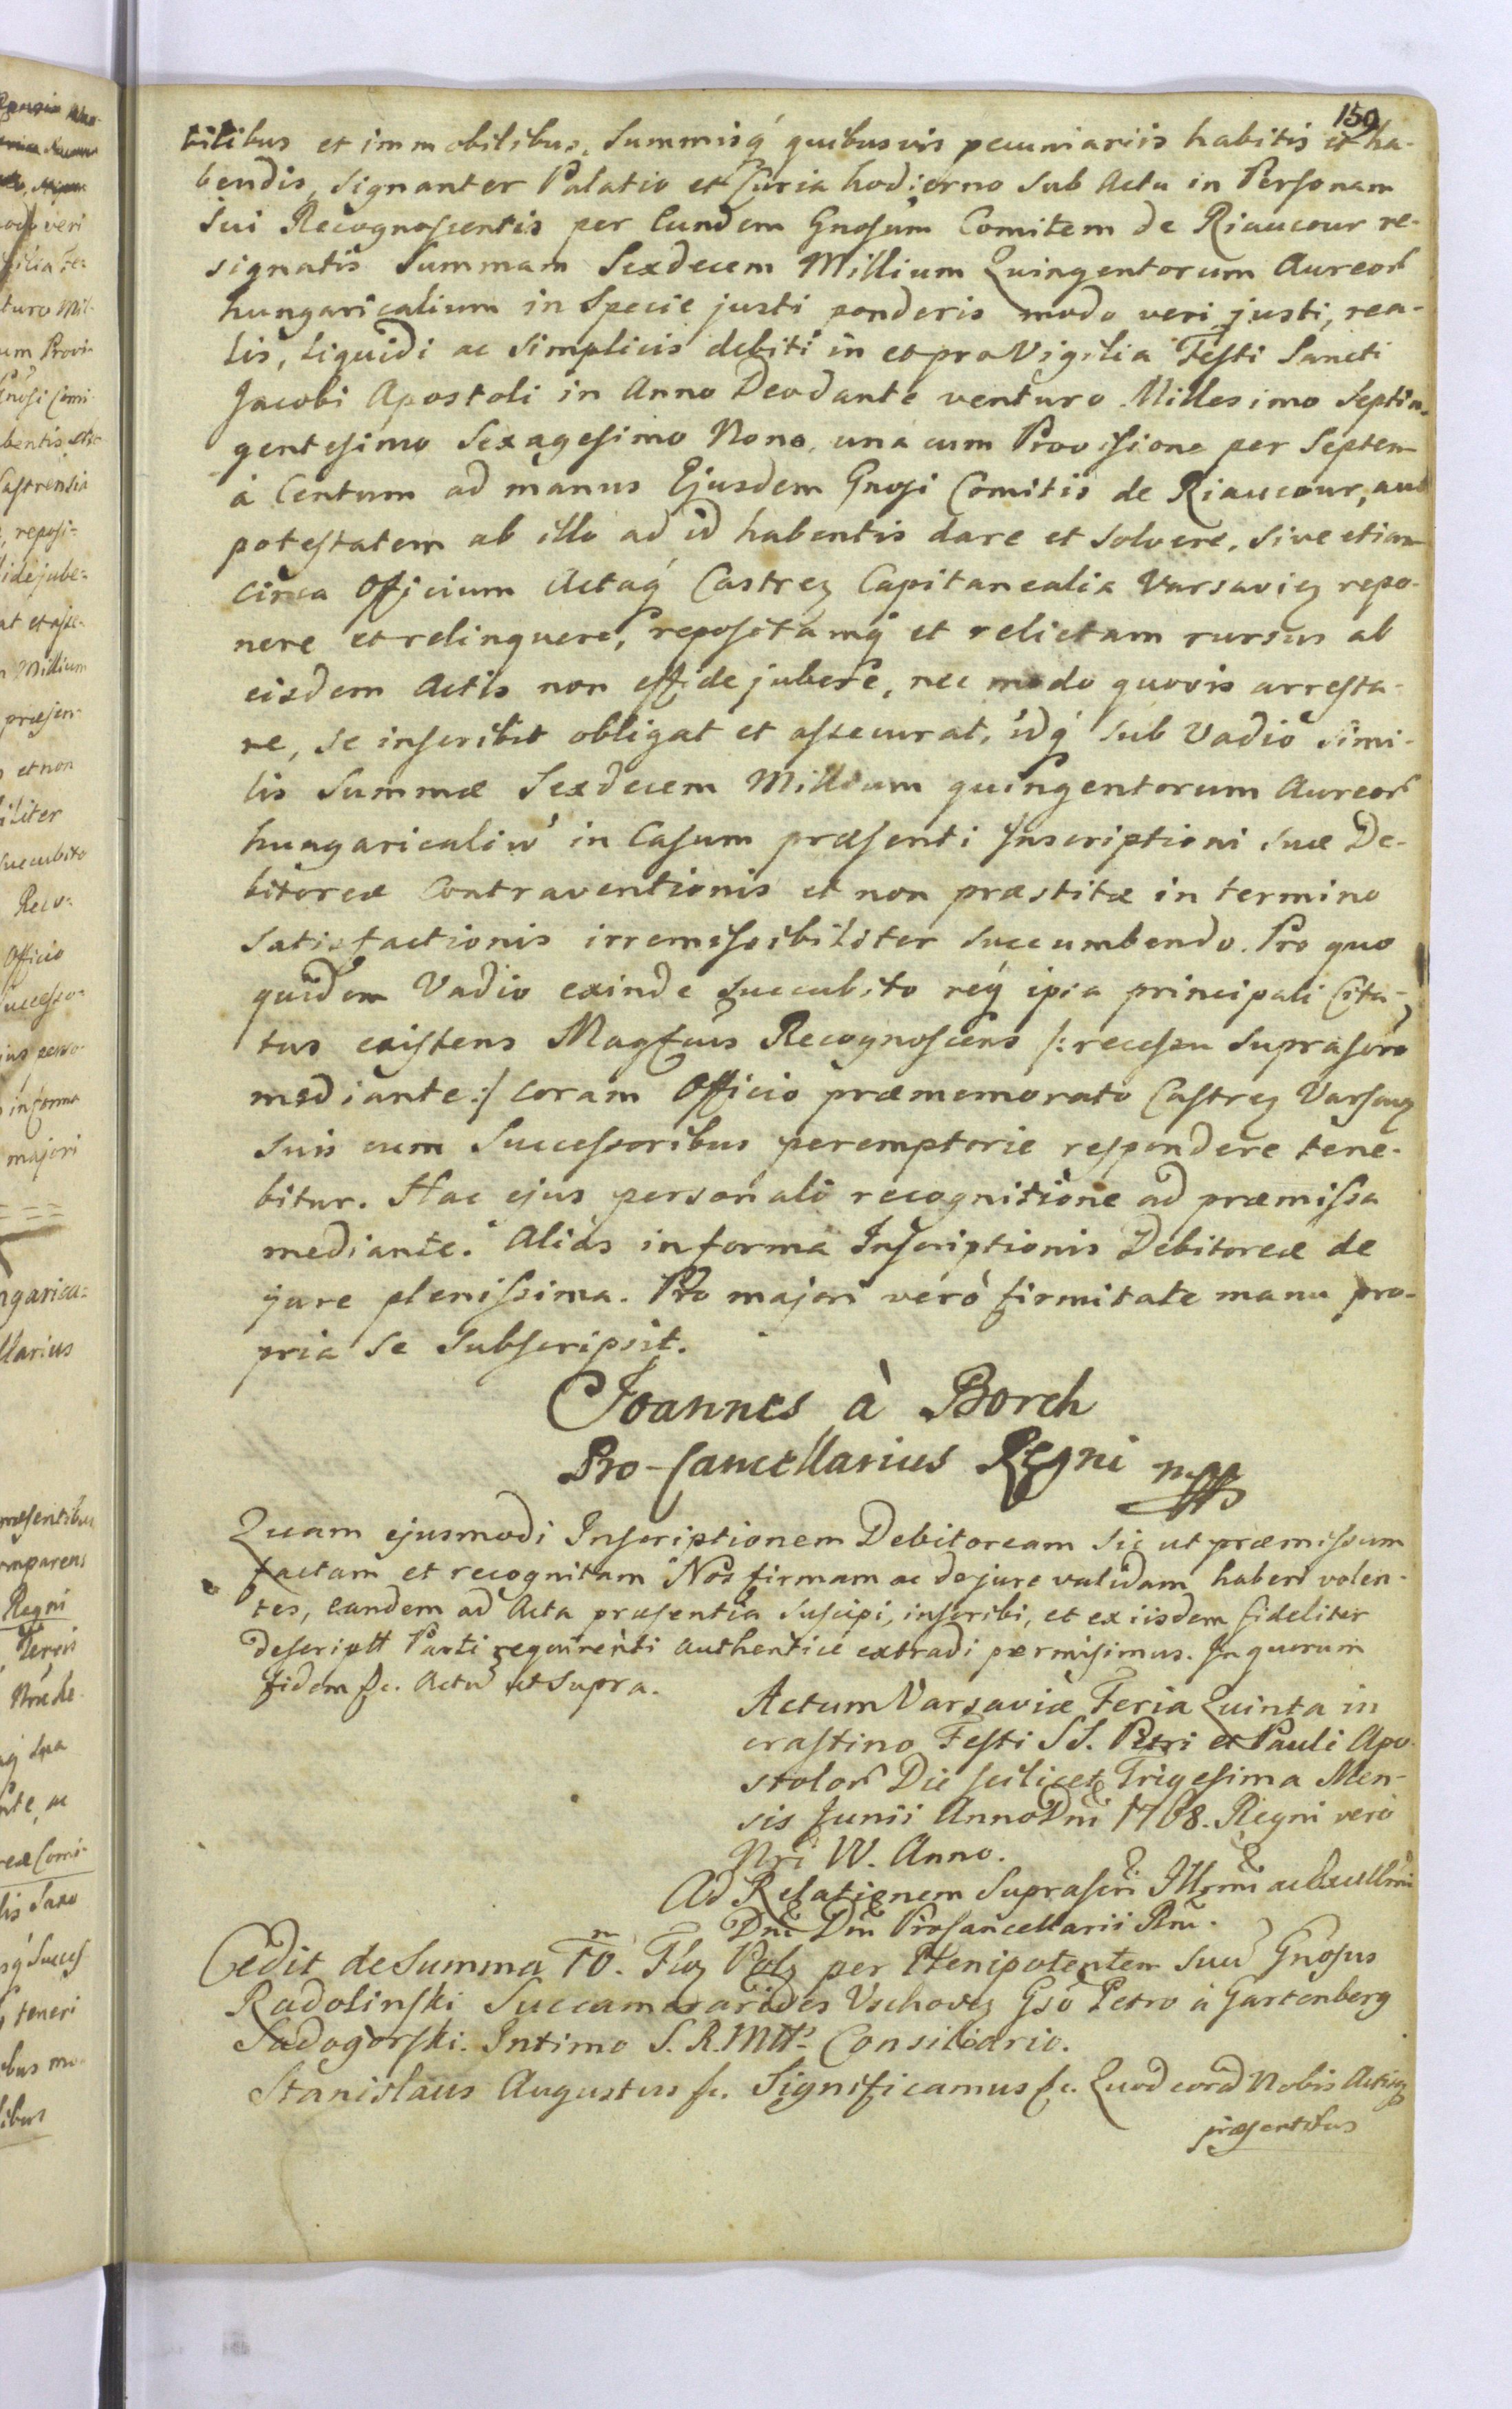 150
bilibus et immobilibus, Summisq́ quibusvis pecuniariis habitis et ha-
bendis, signanter Palatio et Curia hodierno sub Actu in Personam
sui Recognoscentis per Eundem Gnosum Comitem de Riaucour re-
signatis Summam Sexdecem Millium Quingentorum Aureor
hungaricalium in Specie justi ponderis modo veri justi, rea-
lis, liquidi ac simplicis debiti in et pro Vigilia Festi Sancti
Jacobi Apostoli in Anno Deodante venturo Millesimo Septin-
gentesimo Sexagesimo Nono, una cum Provisione per Septem
à Centum ad manus Ejusdem Gnosi Comitis de Riaucour, aut
potestatem ab illo ad id habentis dare et solvere, sive etiam
circa Officium Actaq́ Castren Capitanealia Varsavien repo-
nere et relinquere, repositamq́ et relictam rursus ab
eisdem Actis non effidejubere, nec modo quovis arresta-
re, se inscribit obligat et assecurat, idq́ sub Vadio simi-
lis Summæ Sexdecem Millium quingentorum Aureor
hungaricaliū in Casum præsenti Inscriptioni suæ De-
bitoreæ Contraventionis et non præstitæ in termino
satisfactionis irremissibiliter succumbendo. Pro quo
quidem Vadio exinde succubito req́ ipsa principali Cita-
tus existens Magfcus Recognoscens /: recessu suprascro
mediante :/ coram Officio præmemorato Castren Varsavien
suis cum Successoribus peremptorie respondere tene-
bitur. Hac ejus personali recognitione ad præmissa
mediante. Alias in forma Inscriptionis Debitoreæ de
jure plenissima. Pro majori verò firmitate manu pro-
pria se subscripsit.
Joannes à Borch
Pro-Cancellarius Regni mpp
Quam ejusmodi Inscriptionem Debitoream sic ut præmissum
factam et recognitam Nos firmam ac de jure validam haberi volen-
tes, eandem ad Acta præsentia suscipi, inscribi, et ex iisdem fideliter
descriptt Parti requirenti authentice extradi permisimus. In quorum
fidem &c. Actū ut supra.
Actum Varsaviæ Feria Quinta in
crastino Festi SS. Petri et Pauli Apo-
stolor Die scilicet Trigesima Men-
sis Junii Anno Dni 1768. Regni vero
Nri IV. Anno.
Ad Relationem Suprascri Illrmi ac Excellmi
Dni Dni Procancellarii Rni.
Cedit de Summa 10. m Flor Pol per Plenipotentem suū Gnosus
Radolinski Succamerarides Vschoven Gso Petro à Gartenberg
Sadogorski. Intimo S. R. Mtt. Consiliario.
Stanislaus Augustus &c. Significamus &c. Quod corā Nobis Actisq́
præsentibus